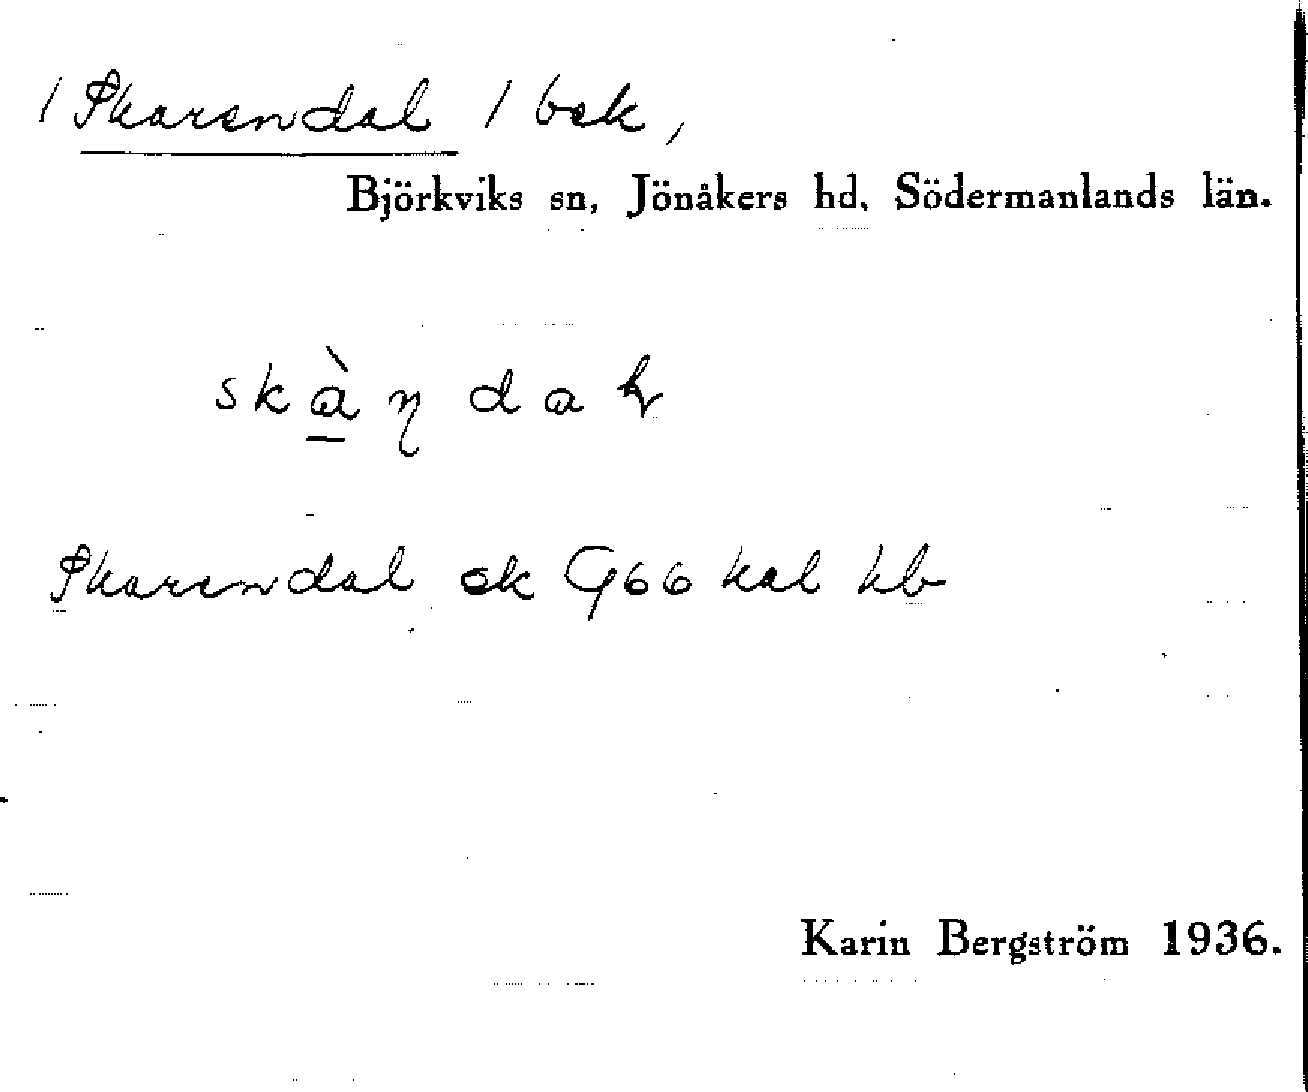 / Skarendal / bek,
Björkviks sn, Jönåkers hd, Södermanlands län.
Skarendal ek G66 kal hb
Karin Bergström 1936.